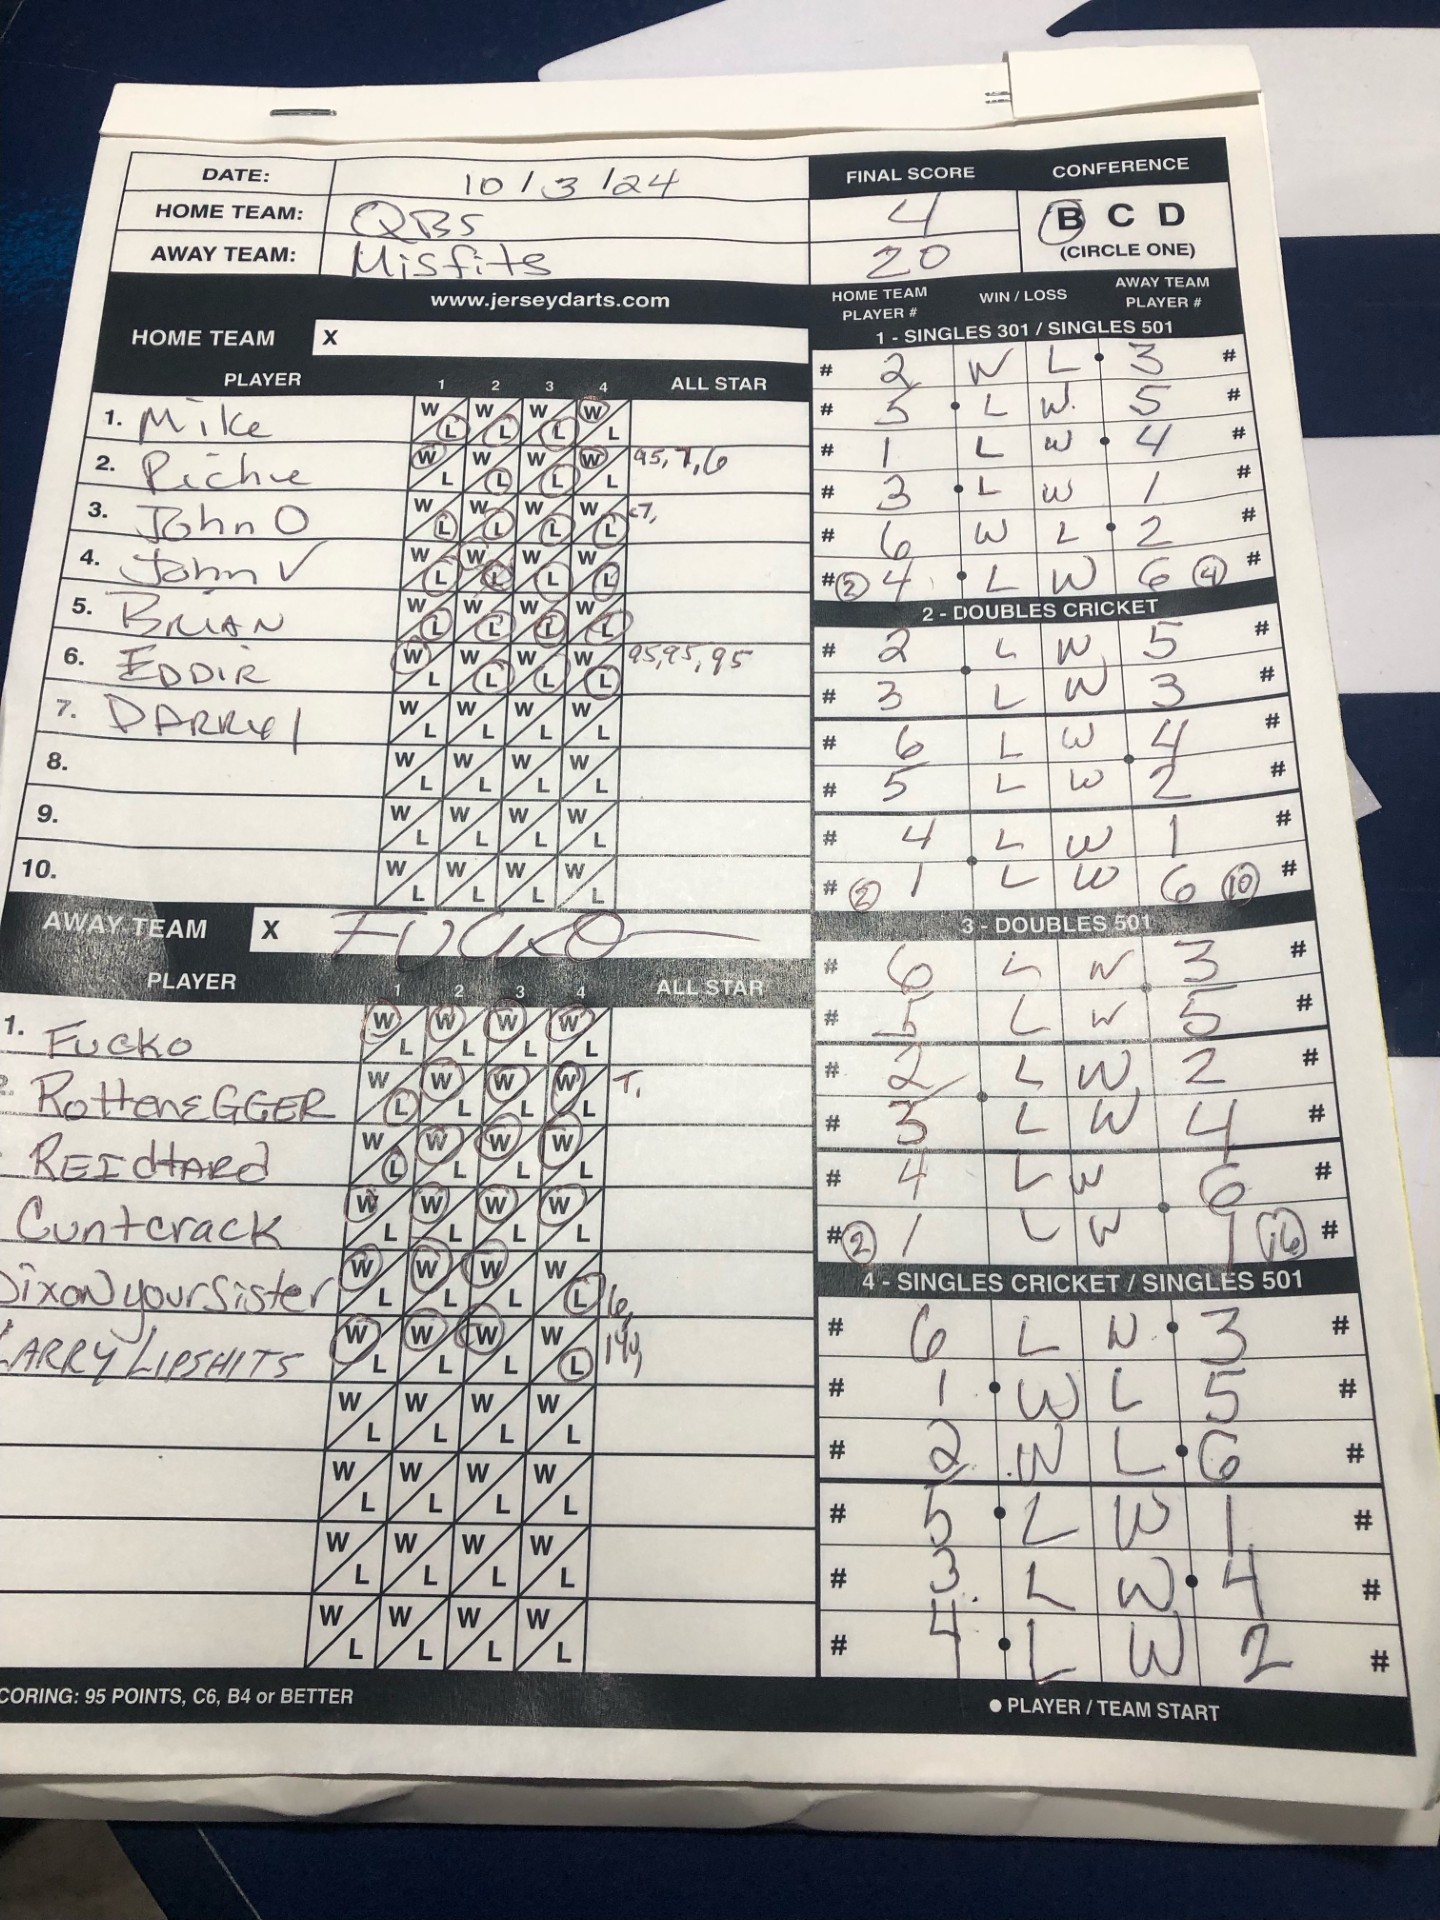 DATE: 10/3/24
HOME TEAM: QBS
AWAY TEAM: Misfits
FINAL SCORE
4
20
CONFERENCE
B C D
(CIRCLE ONE)
www.jerseydarts.com
HOME TEAM X
PLAYER 1 2 3 4 ALL STAR
1. Mike W L W L W L W L
2. Richie W L W L W L W L 95, 7, 6
3. John O W L W L W L W L
4. John V W L W L W L W L
5. BRIAN W L W L W L W L
6. EDDIE W L W L W L W L 95, 95, 95
7. DARRYl W L W L W L W L
8. W L W L W L W L
9. W L W L W L W L
10. W L W L W L W L
AWAY TEAM X FUCKO
PLAYER 1 2 3 4 ALL STAR
1. FUCKO W L W L W L W L
RottenEGGER W L W L W L W L
REIdtARd W L W L W L W L
Cuntcrack W L W L W L W L
DixonyourSister W L W L W L W L 6,
LARRY LIPSHITS W L W L W L W L 140,
W L W L W L W L
W L W L W L W L
W L W L W L W L
W L W L W L W L
CORING: 95 POINTS, C6, B4 or BETTER
HOME TEAM PLAYER # WIN / LOSS AWAY TEAM PLAYER #
1 - SINGLES 301 / SINGLES 501
# 2 W L 3 #
# 5 L W 5 #
# 1 L W 4 #
# 3 L W 1 #
# 6 W L 2 #
# 2 4 L W 6 4 #
2 - DOUBLES CRICKET
# 2 L W 5 #
# 3 L W 3 #
# 6 L W 4 #
# 5 L W 2 #
# 4 L W 1 #
# 2 1 L W 6 10 #
3 - DOUBLES 501
# 6 L W 3 #
# 5 L W 5 #
# 2 L W 2 #
# 3 L W 4 #
# 4 L W 6 #
# 2 1 L W 1 16 #
4 - SINGLES CRICKET / SINGLES 501
# 6 L W 3 #
# 1 W L 5 #
# 2 W L 6 #
# 5 L W 1 #
# 3 L W 4 #
# 4 L W 2 #
PLAYER / TEAM START